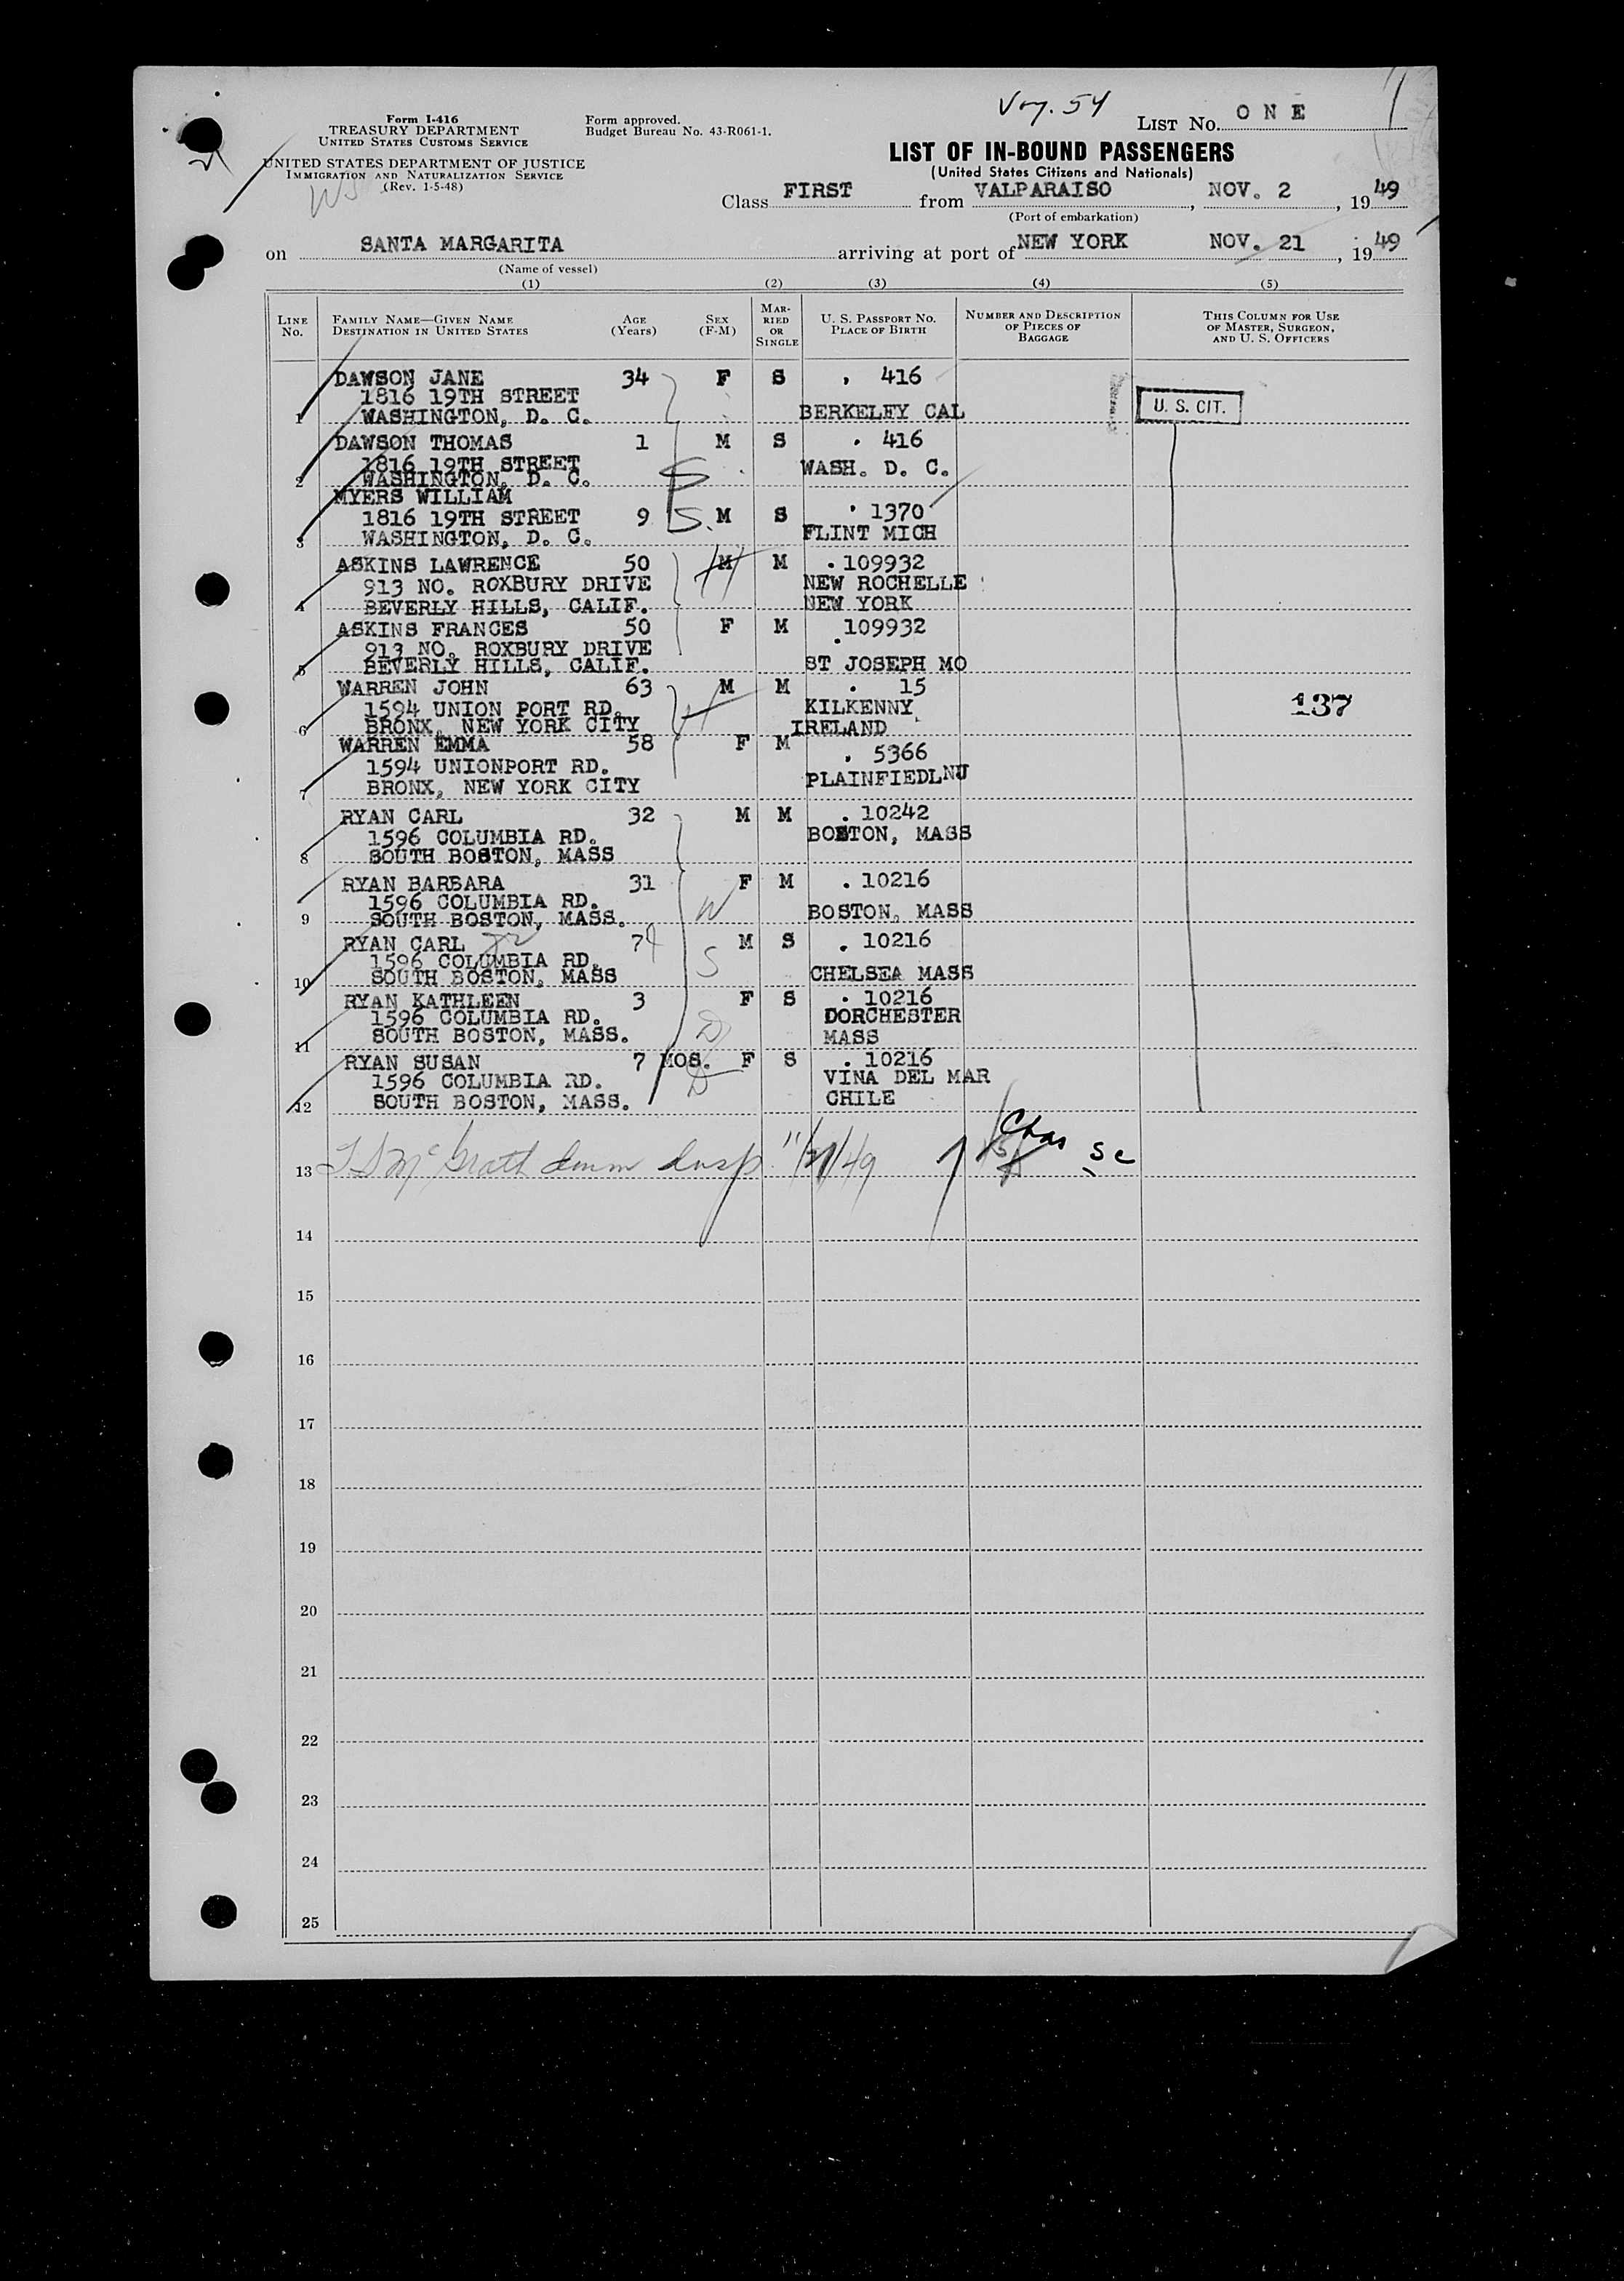 Voy. 54
Form I-416
TREASURY DEPARTMENT
UNITED STATES CUSTOMS SERVICE
UNITED STATES DEPARTMENT OF JUSTICE
IMMIGRATION AND NATURALIZATION SERVICE
(Rev. 1-5-48)
Form approved.
Budget Bureau No. 43-R061-1.
LIST NO. ONE
LIST OF IN-BOUND PASSENGERS
(United States Citizens and Nationals)
Class FIRST from VALPARAISO, NOV. 2, 1949
(Port of embarkation)
on SANTA MARGARITA arriving at port of NEW YORK NOV. 21, 1949
(Name of vessel)
(1) (2) (3) (4) (5)
LINE NO. FAMILY NAME—GIVEN NAME DESTINATION IN UNITED STATES AGE (Years) SEX (F-M) MARRIED OR SINGLE U. S. PASSPORT NO. PLACE OF BIRTH NUMBER AND DESCRIPTION OF PIECES OF BAGGAGE THIS COLUMN FOR USE OF MASTER, SURGEON, AND U. S. OFFICERS
DAWSON JANE 34 F S 416
1816 19TH STREET
1 WASHINGTON, D. C. BERKELEY CAL U. S. CIT.
DAWSON THOMAS 1 M S 416
1816 19TH STREET WASH. D. C.
2 WASHINGTON, D. C.
MYERS WILLIAM
1816 19TH STREET 9 M S 1370
3 WASHINGTON, D. C. FLINT MICH
ASKINS LAWRENCE 50 M M 109932
913 NO. ROXBURY DRIVE NEW ROCHELLE
4 BEVERLY HILLS, CALIF. NEW YORK
ASKINS FRANCES 50 F M 109932
913 NO. ROXBURY DRIVE
5 BEVERLY HILLS, CALIF. ST JOSEPH MO
WARREN JOHN 63 M M 15
1594 UNION PORT RD. KILKENNY 137
6 BRONX, NEW YORK CITY IRELAND
WARREN EMMA 58 F M 5366
1594 UNIONPORT RD.
7 BRONX, NEW YORK CITY PLAINFIEDLNU
RYAN CARL 32 M M 10242
1596 COLUMBIA RD. BOSTON, MASS
8 SOUTH BOSTON, MASS
RYAN BARBARA 31 F M 10216
1596 COLUMBIA RD.
9 SOUTH BOSTON, MASS. BOSTON, MASS
RYAN CARL 7 M S 10216
1596 COLUMBIA RD.
10 SOUTH BOSTON, MASS CHELSEA MASS
RYAN KATHLEEN 3 F S 10216
1596 COLUMBIA RD. DORCHESTER
11 SOUTH BOSTON, MASS. MASS
RYAN SUSAN 7 MOS. F S 10216
1596 COLUMBIA RD. VINA DEL MAR
12 SOUTH BOSTON, MASS. CHILE
13 McGrath Imm Insp. 11/21/49
14
15
16
17
18
19
20
21
22
23
24
25